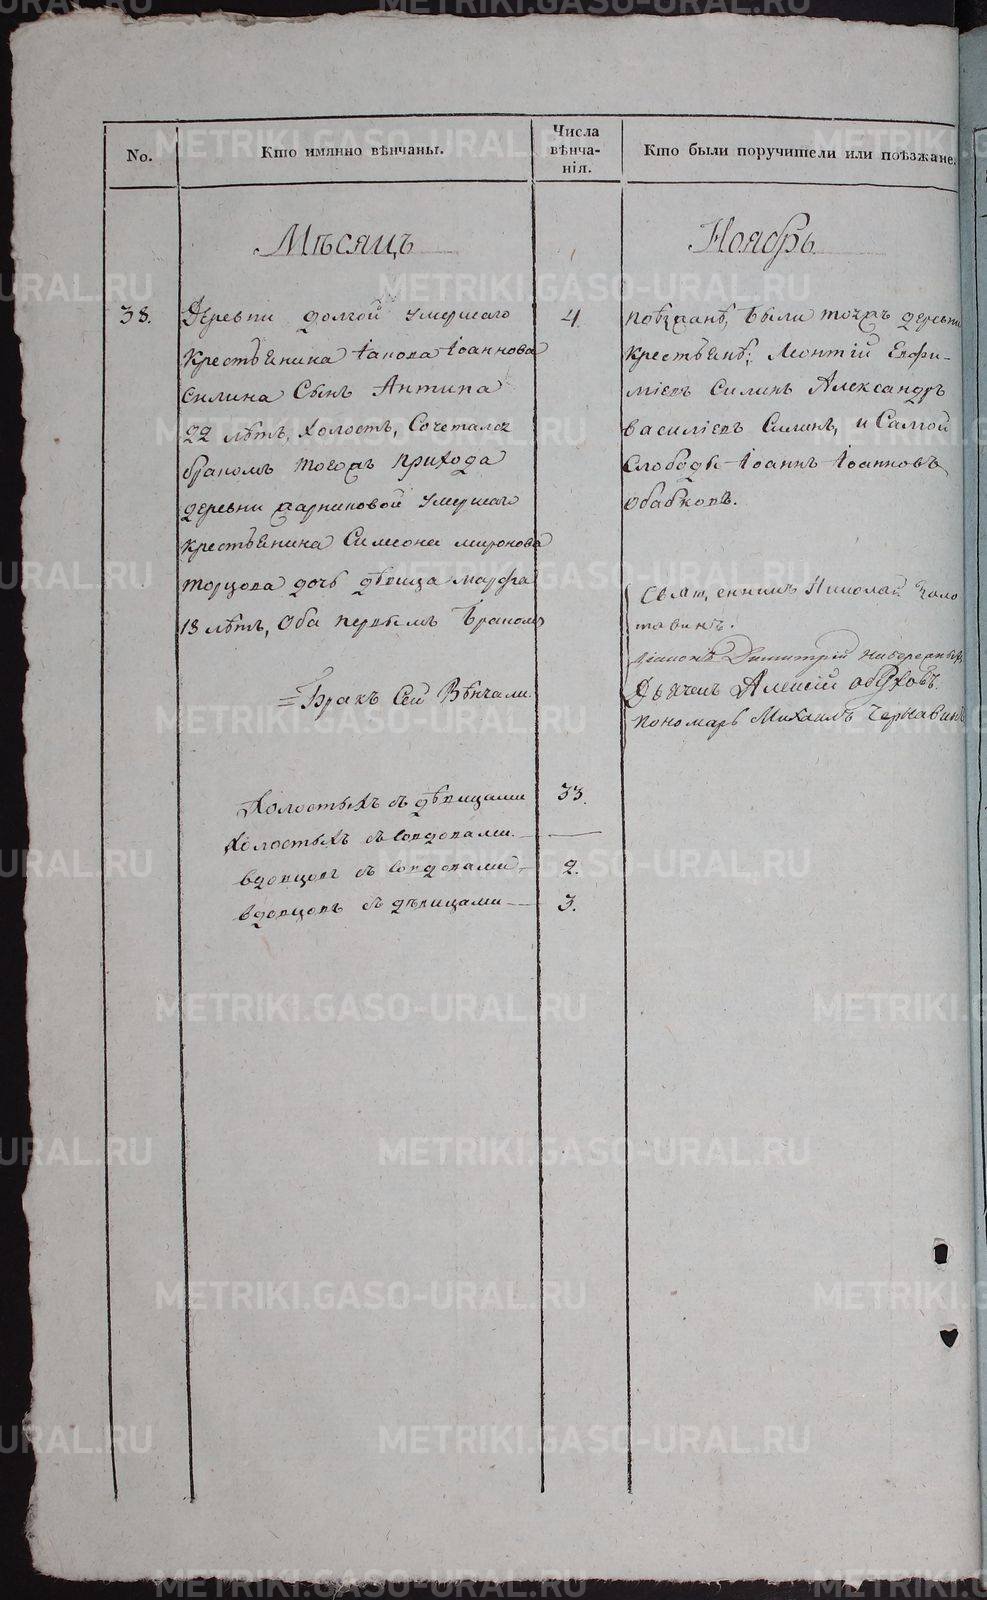 No.
Кто имянно вѣнчаны.
Числа
вѣнча-
нія.
Кто были поручители или поѣзжане.
Мѣсяцъ
Ноябрь
38.
Деревни долгой умершаго
крестьянина Iакова Iоаннова
Силина Сынъ Антипа
22 лѣтъ, холостъ, Сочетался
бракомъ тогожъ прихода
деревни умершаго
крестьянина Симеона миронова
Торцова дочь дѣвица марфа
18 лѣтъ, Оба первымъ бракомъ
4.
поѣзжанѣ, были тожъ деревни
крестьянѣ; Леонтiй Евфи-
мiевъ Силинъ Александръ
василiевъ Силинъ, и Самой
Слободы Iоаннъ Iоанновъ
Обабковъ.
=Бракъ Сей Вѣнчали
Священникъ Николай
Дiаконъ Димитрiй
Дьячекъ Алексiй
пономарь Михаилъ Чернавинъ
Холостыхъ съ дѣвицами
33.
Холостыхъ съ вдовами.
вдовцовъ съ вдовами
2.
вдовцовъ съ дѣвицами
3.
METRIKI.GASO-URAL.RU